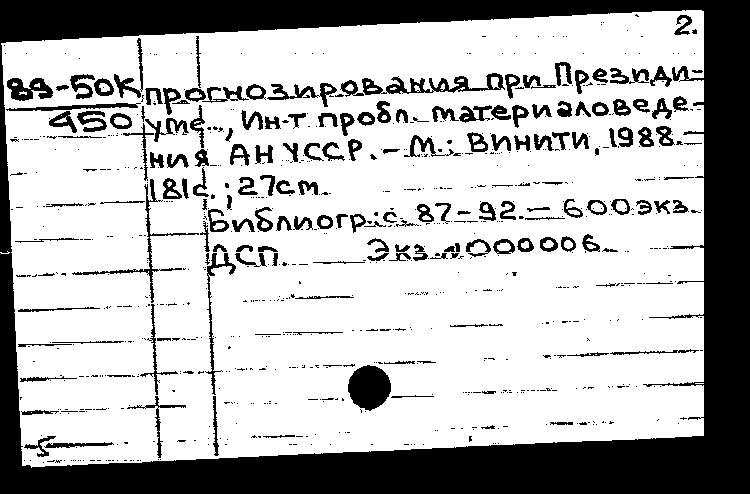 2.
89-50К прогнозирования при Президи-
450 уме..., Ин-т пробл. материаловеде-
ния АН УССР. - М.: ВИНИТИ, 1988. -
181с.; 27см.
Библиогр.: с. 87-92. - 600экз.
ДСП. Экз. №000006.
5